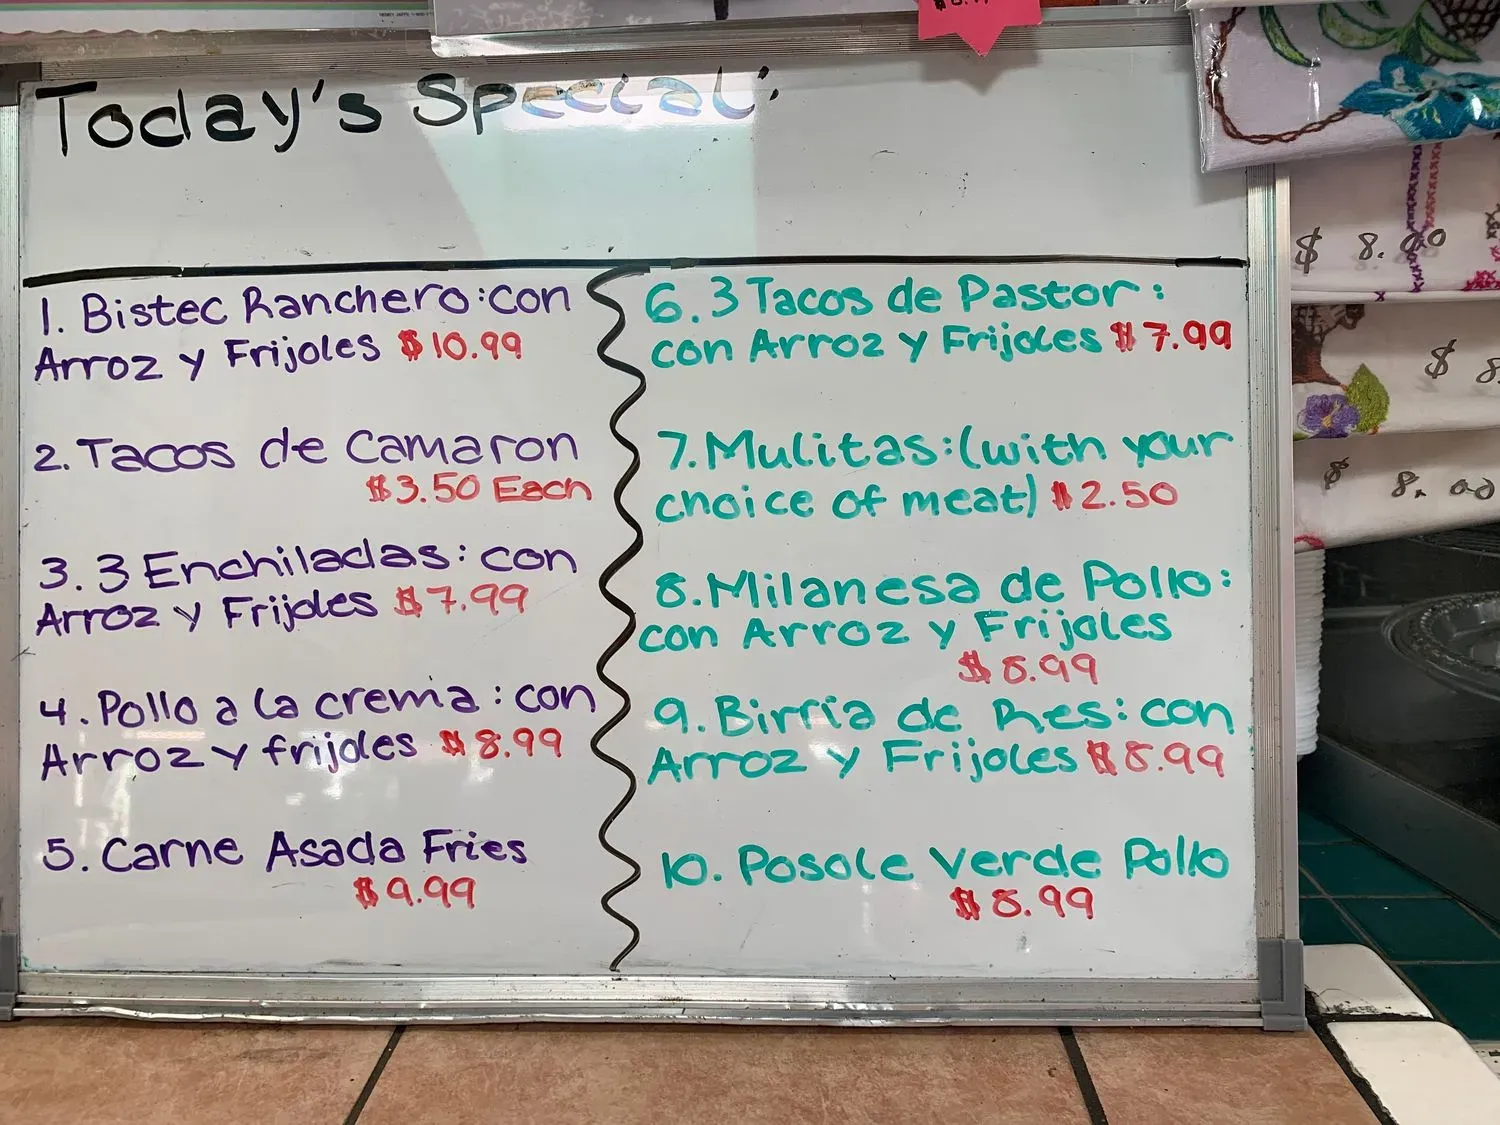 Today's Special:
1. Bistec Ranchero: con
Arroz y Frijoles $10.99
2. Tacos de Camaron
$3.50 Each
3. 3 Enchiladas: con
Arroz y Frijoles $7.99
4. Pollo a la crema: con
Arroz y frijoles $8.99
5. Carne Asada Fries
$9.99
6. 3 Tacos de Pastor:
con Arroz y Frijoles $7.99
7. Mulitas: (with your
choice of meat) $2.50
8. Milanesa de Pollo:
con Arroz y Frijoles
$8.99
9. Birria de Res: con
Arroz y Frijoles $8.99
10. Posole Verde Pollo
$8.99
$ 8.00
$ 8.
$ 8.00